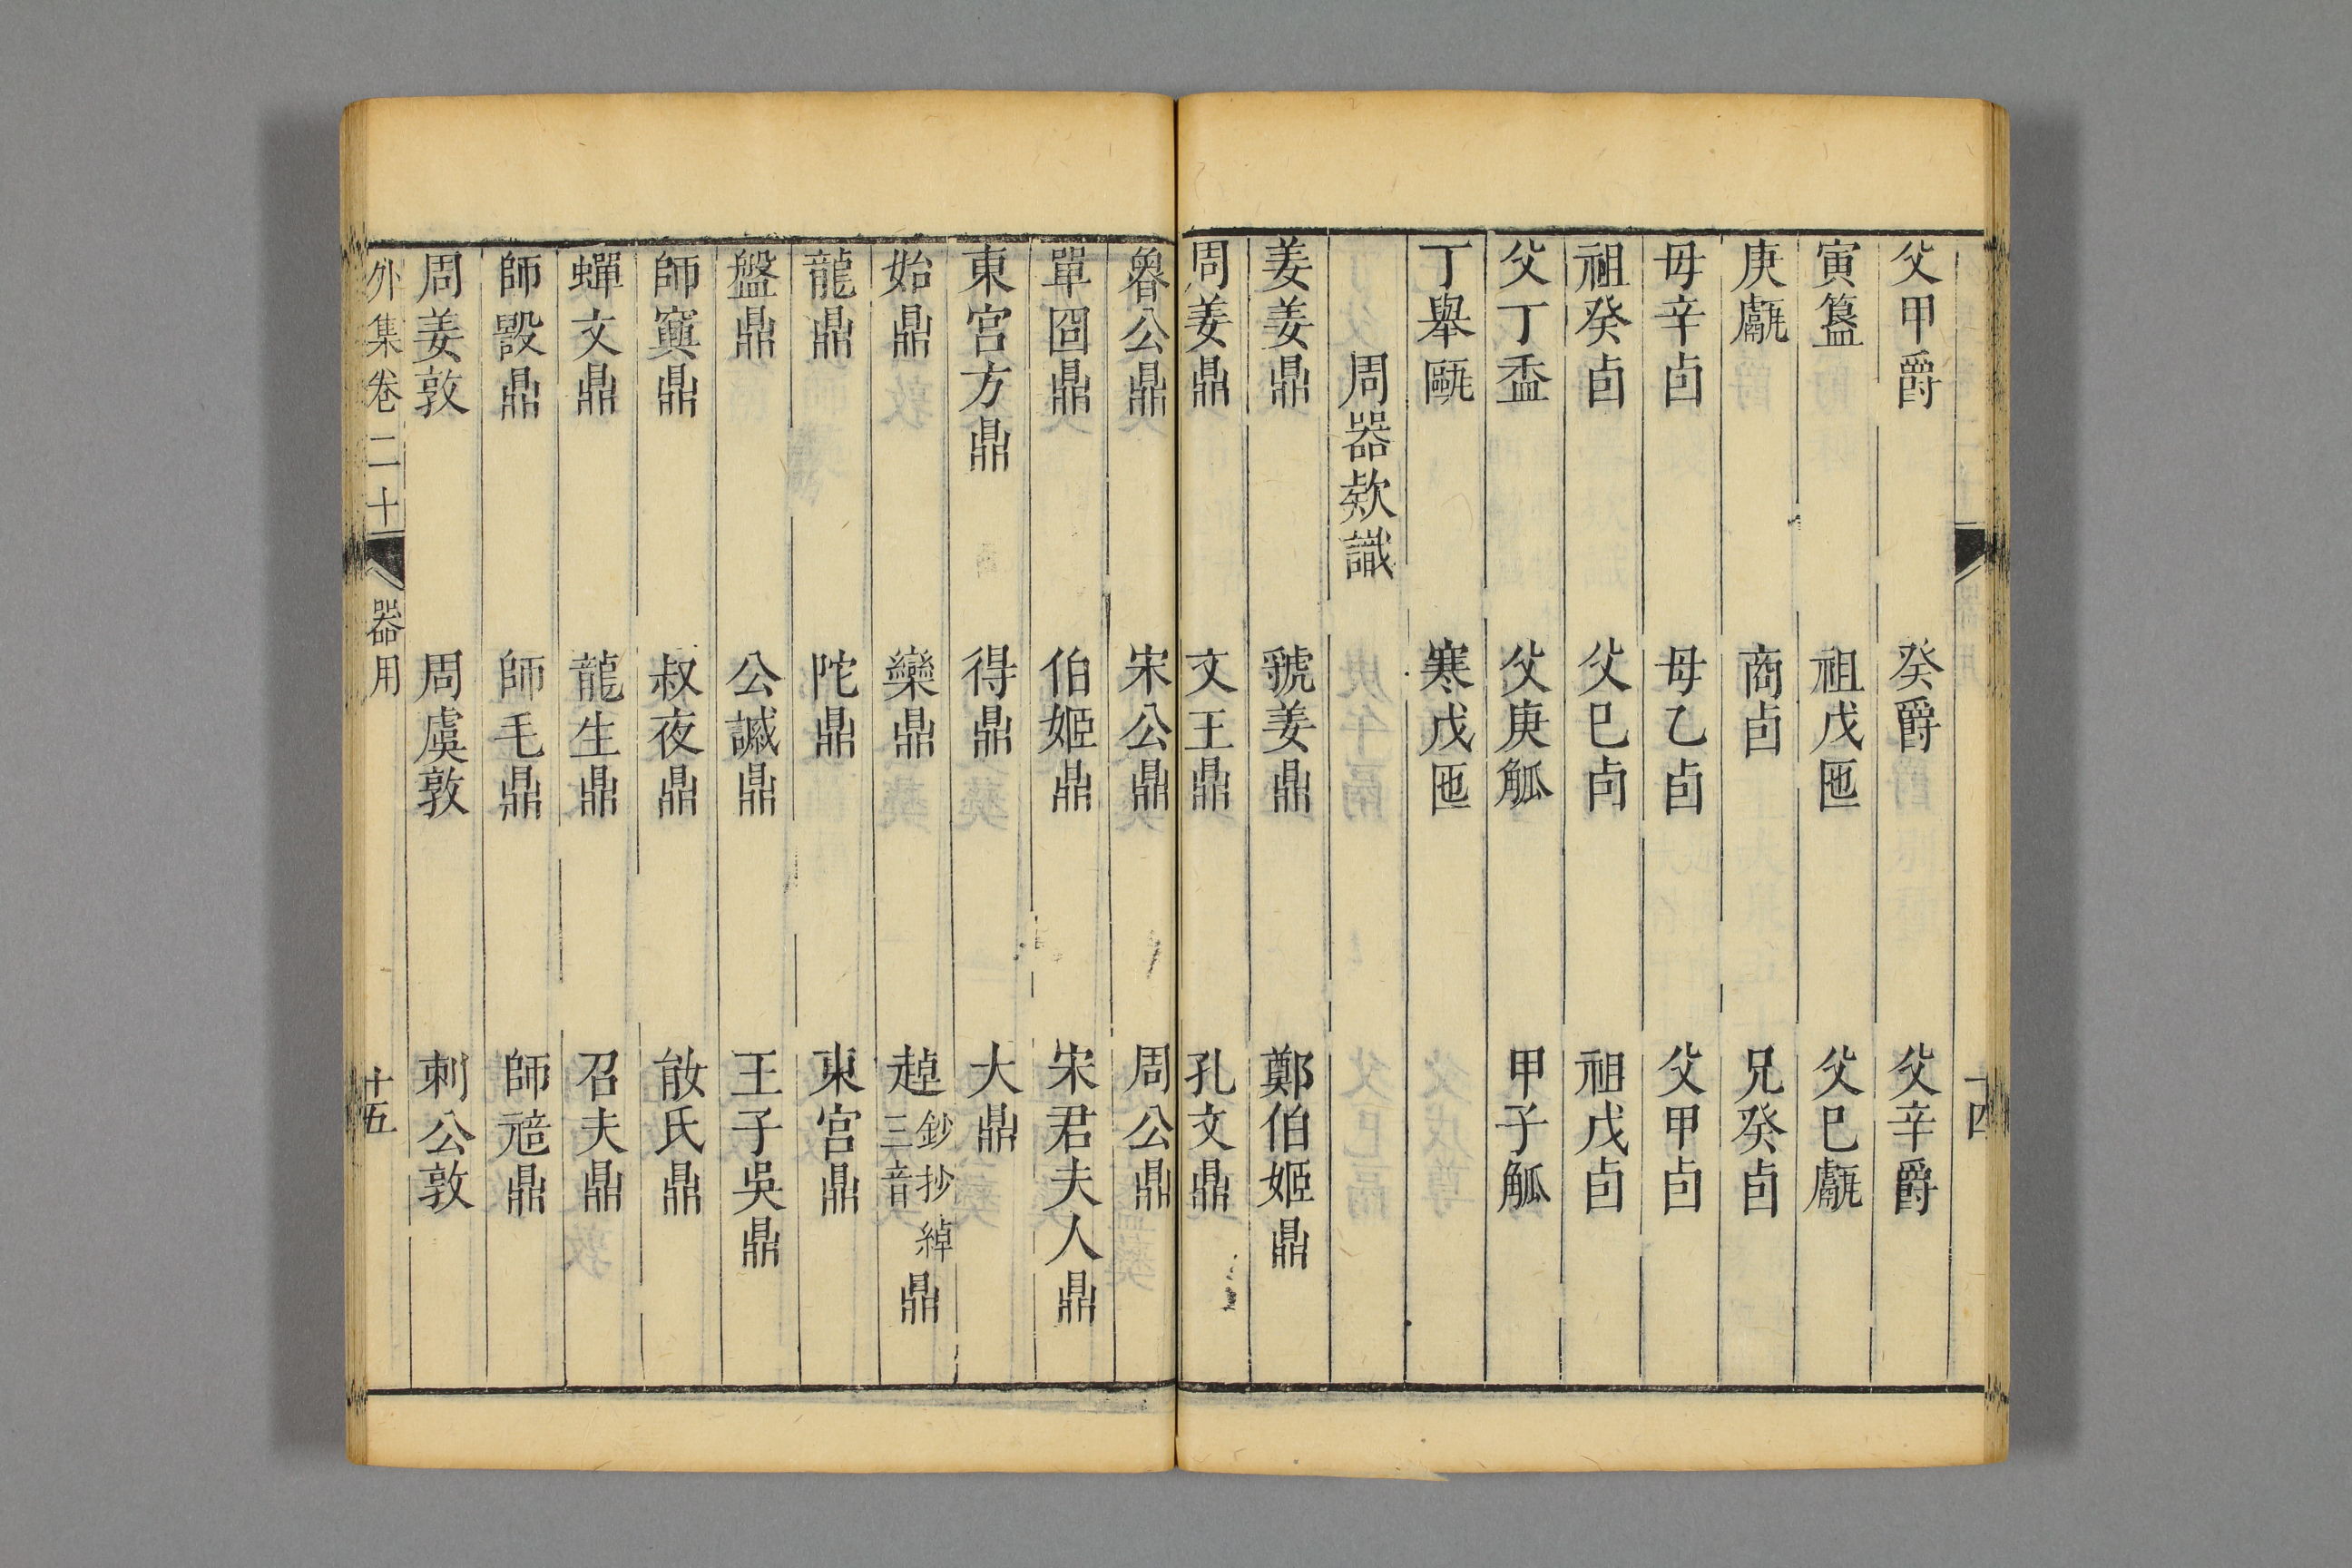 父甲爵　癸爵　父辛爵
寅簋　祖戊匜　父巳甗
庚甗　商卣　兄癸卣
母辛卣　母乙卣　父甲卣
祖癸卣　父巳卣　祖戊卣
父丁盉　父庚觚　甲子觚
丁舉甌　寒戊匜
周器欵識
姜姜鼎　虢姜鼎　鄭伯姬鼎
周姜鼎　文王鼎　孔文鼎
魯公鼎　宋公鼎　周公鼎
單囧鼎　伯姬鼎　宋君夫人鼎
東宮方鼎　得鼎　大鼎
始鼎　欒鼎　趠鈔抄綽三音鼎
龍鼎　陀鼎　東宮鼎
盤鼎　公諴鼎　王子吳鼎
師寘鼎　叔夜鼎　㪚氏鼎
蟬文鼎　龍生鼎　召夫鼎
師毀鼎　師毛鼎　師鼎
周姜敦　周虞敦　刺公敦
外集卷二十　器用　十五
十四